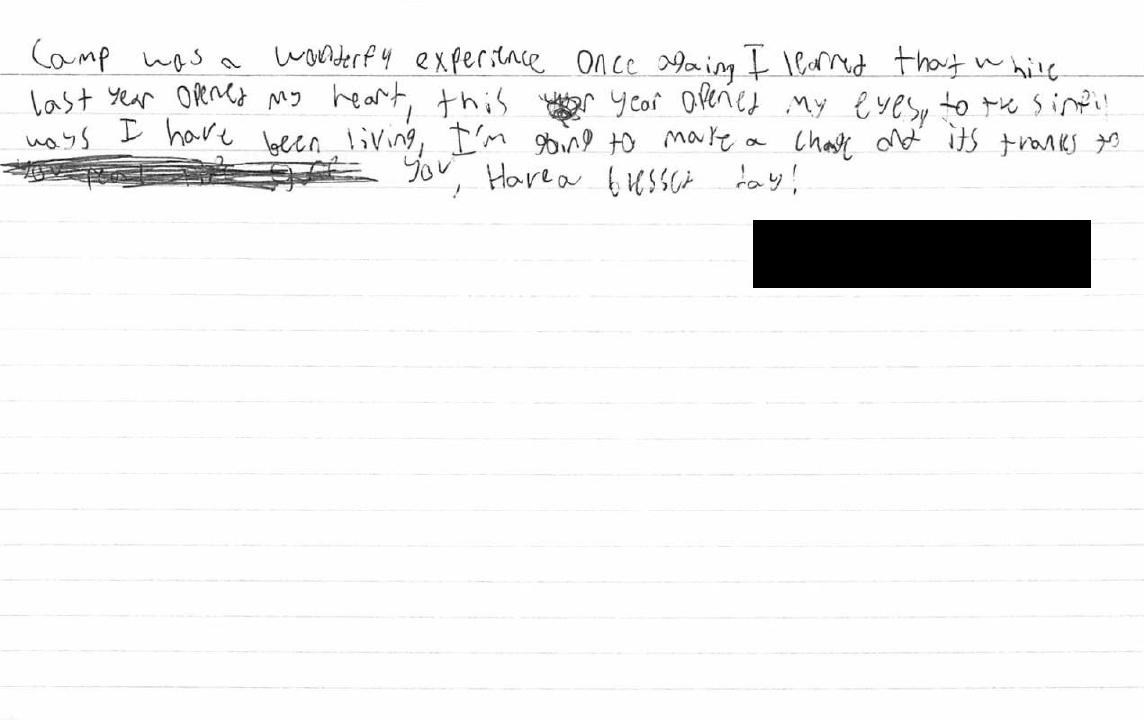 Camp was a wonderful experience once againg I learned that while
last year opened my heart, this year opened my eyes, to the sinful
ways I have been living, I'm going to make a change and its thanks to
you, Have a blessed day!